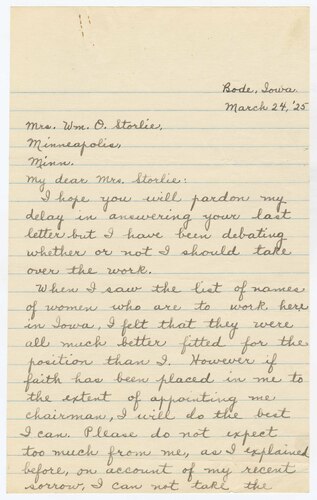 Bode, Iowa.
March 24, '25
Mrs. Wm. O. Storlie,
Minneapolis,
Minn.
My dear Mrs. Storlie:
I hope you will pardon my
delay in answering your last
letter but I have been debating
whether or not I should take
over the work.
When I saw the list of names
of women who are to work here
in Iowa, I felt that they were
all much better fitted for the
position than I. However if
faith has been placed in me to
the extent of appointing me
chairman, I will do the best
I can. Please do not expect
too much from me, as I explained
before, on account of my recent
sorrow, I can not take the